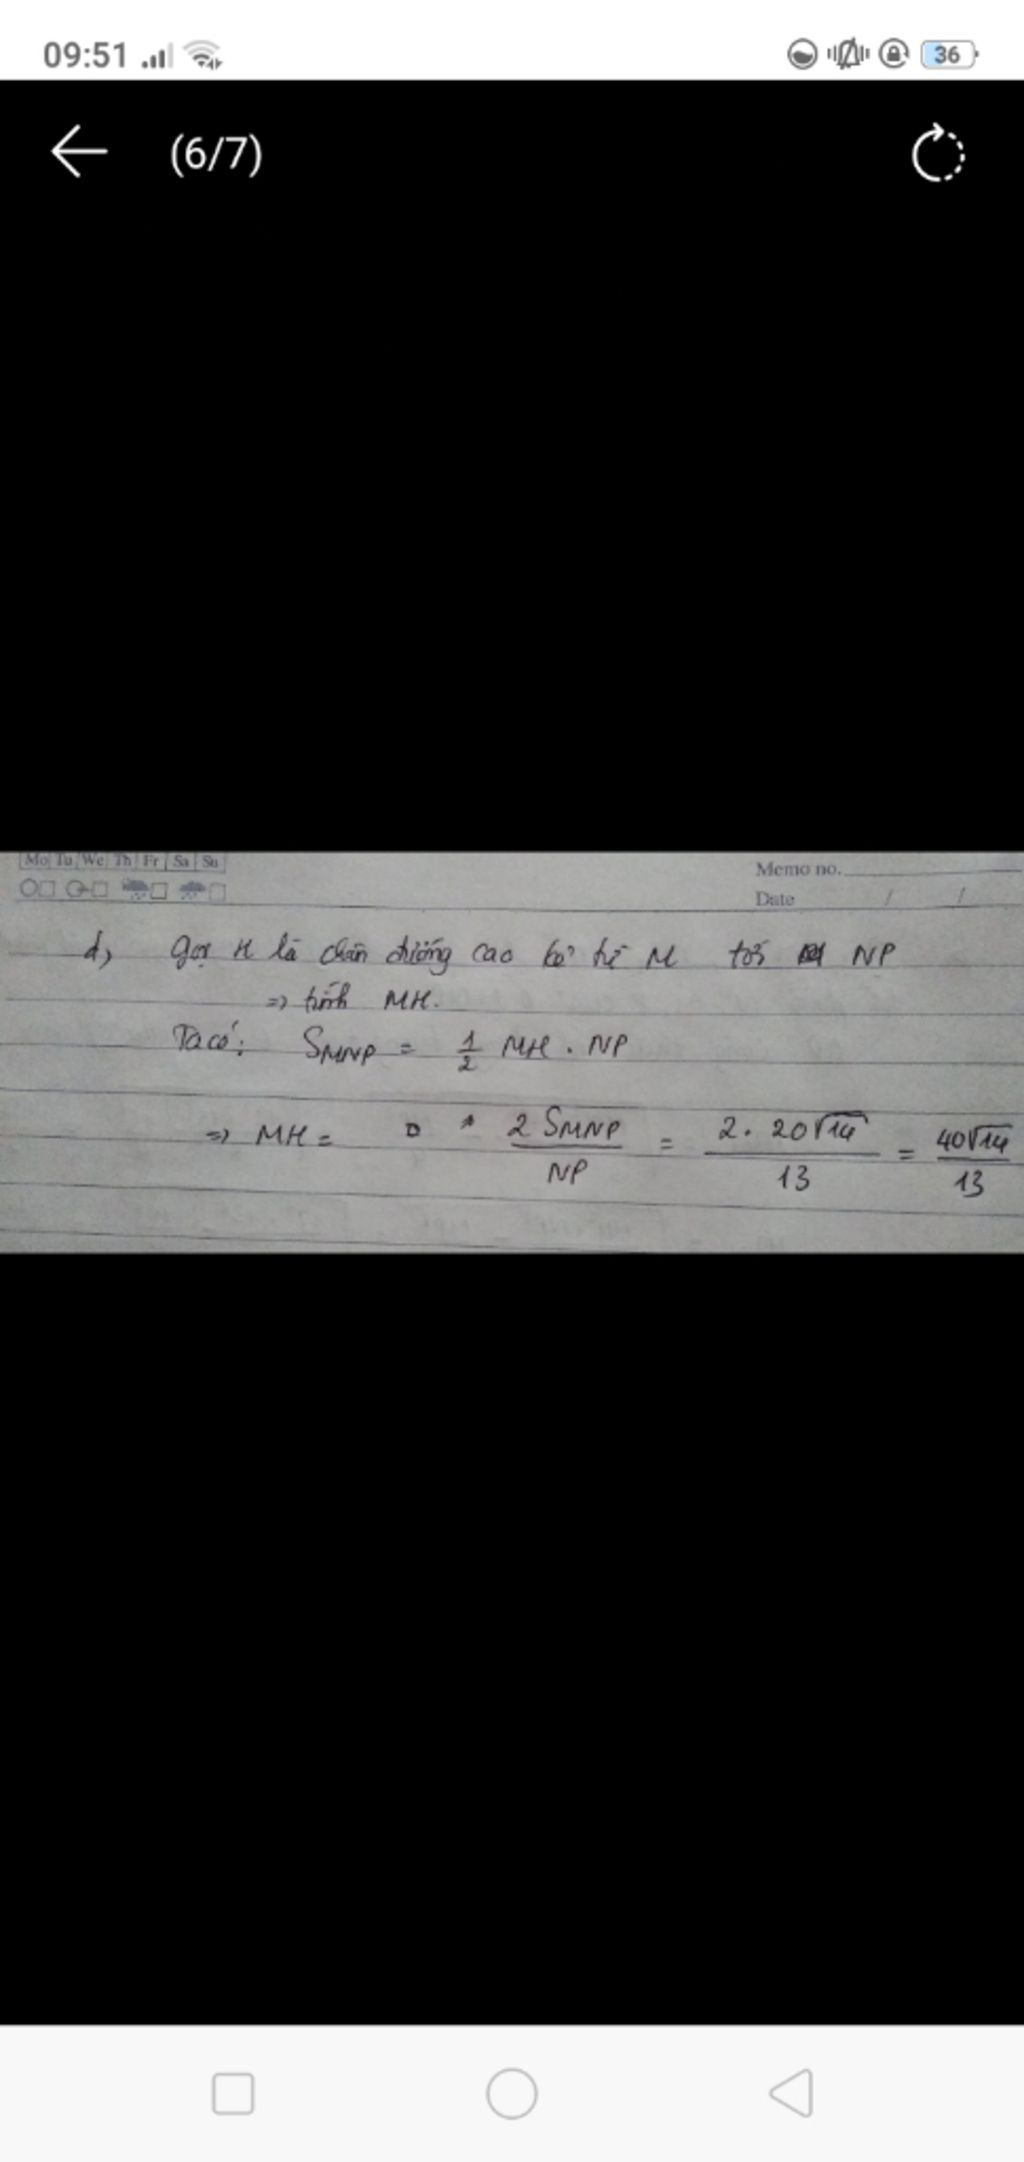 09:51
36
(6/7)
Mo Tu We Th Fr Sa Su
Memo no.
Date / /
d, Gọi H là chân đường cao kẻ từ M tới NP
=> tính MH.
Ta có: SMNP = 1/2 MH . NP
=> MH = 2 SMNP / NP = 2. 20√14 / 13 = 40√14 / 13